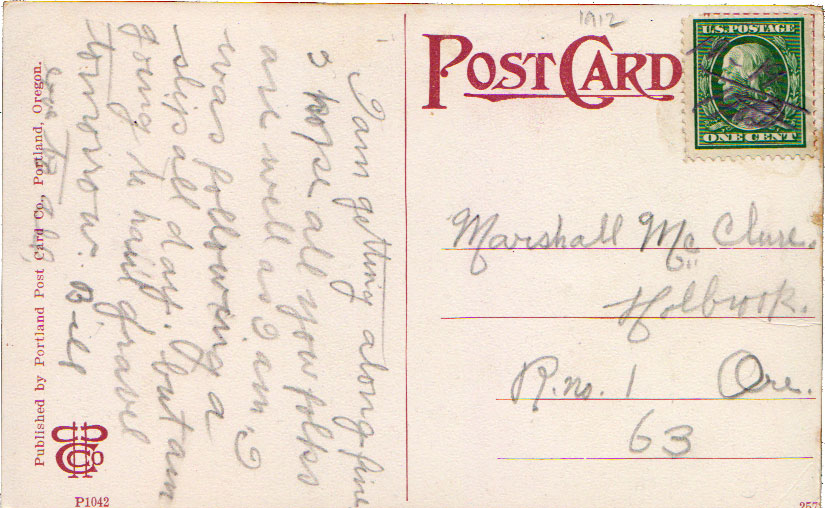 1912
POST CARD
U.S. POSTAGE
ONE CENT
Marshall Mc Clure.
Holbrook.
R. no. 1 Ore.
63
I am getting along fine
& hope all you folks
are well as I am. I
was following a
slip all day. but am
going to haul gravel
tomorrow. Bill
Published by Portland Post Card Co., Portland, Oregon.
P1042
257